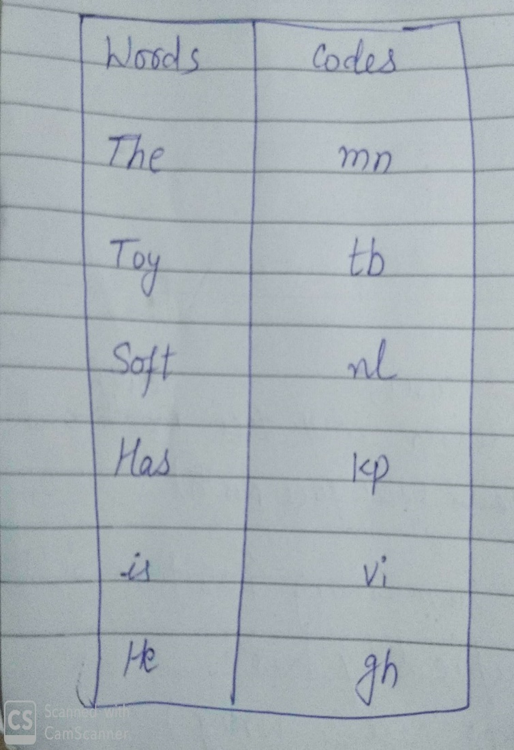 Words Codes
The mn
Toy tb
Soft nl
Has kp
is vi
He gh
CS Scanned with
CamScanner